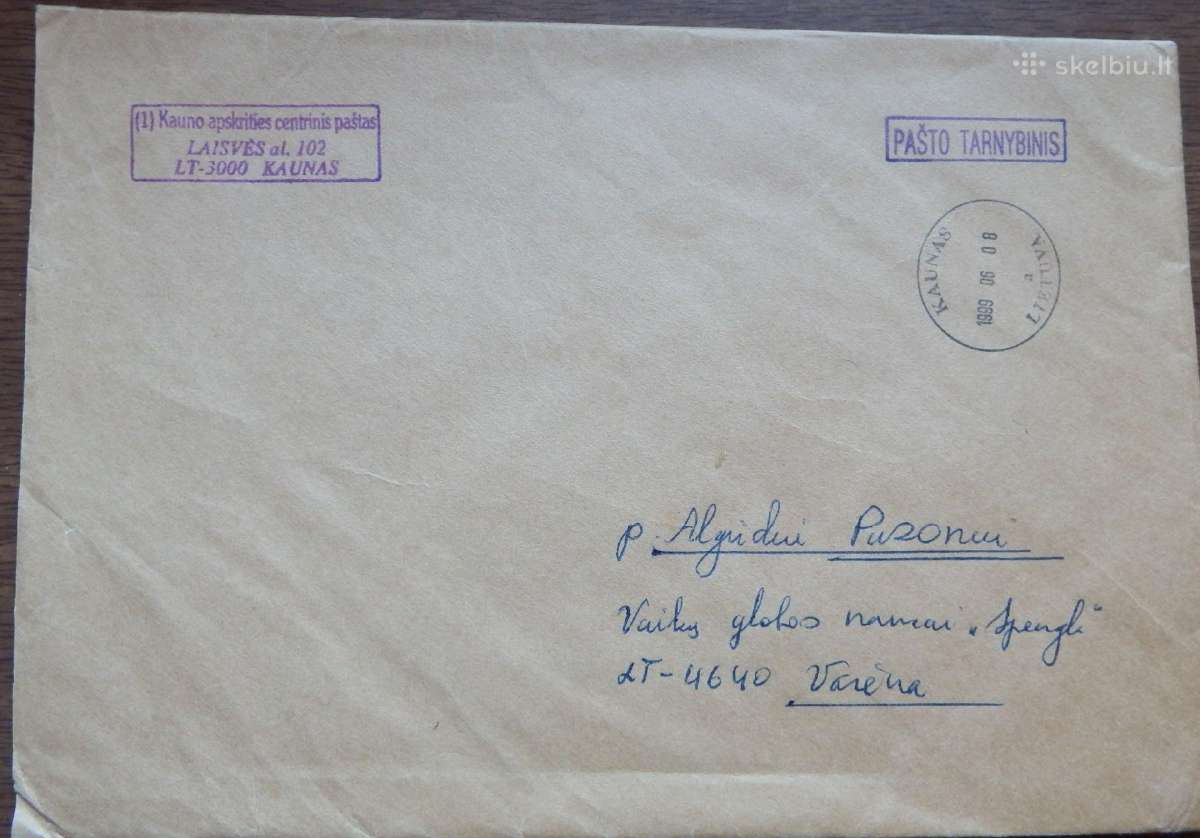 skelbiu.lt
(1) Kauno apskrities centrinis paštas
LAISVĖS al. 102
LT-3000 KAUNAS
PAŠTO TARNYBINIS
KAUNAS
1999 06 08
a
LIETUVA
p. Algridui Puzonui
Vaikų globos namai
LT-4640 Varėna